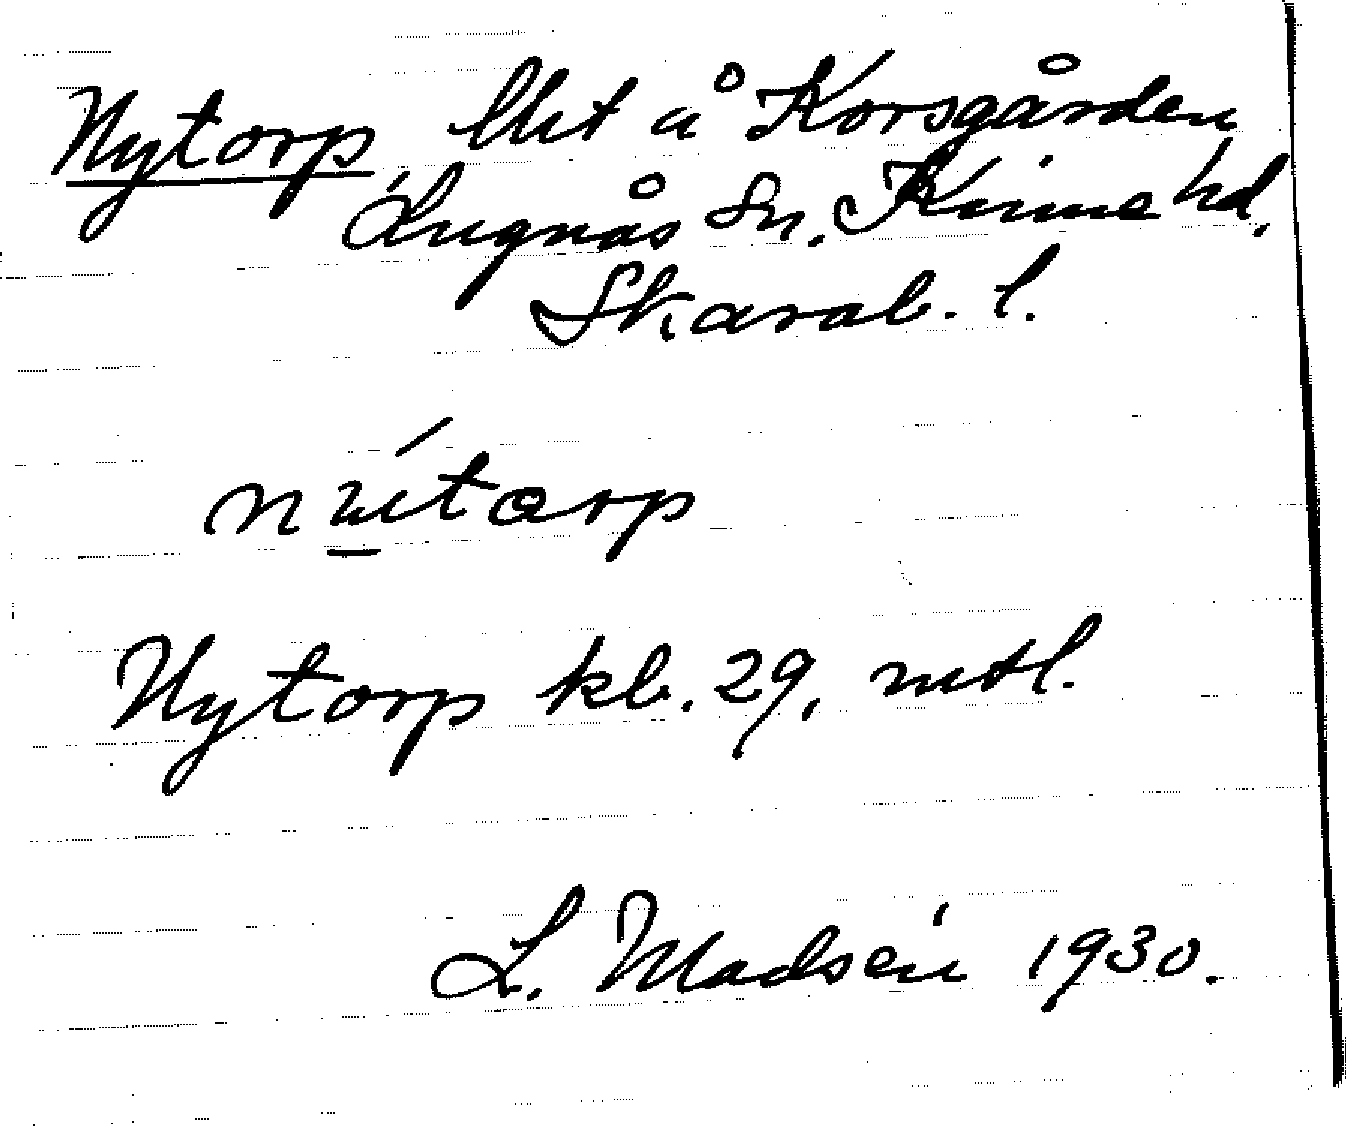 Nytorp lht å Korsgården
Lugnås Sn. Kinne hd.
Skarab. l.
Nytorp kb. 29, mtl.
L. Madsén 1930.